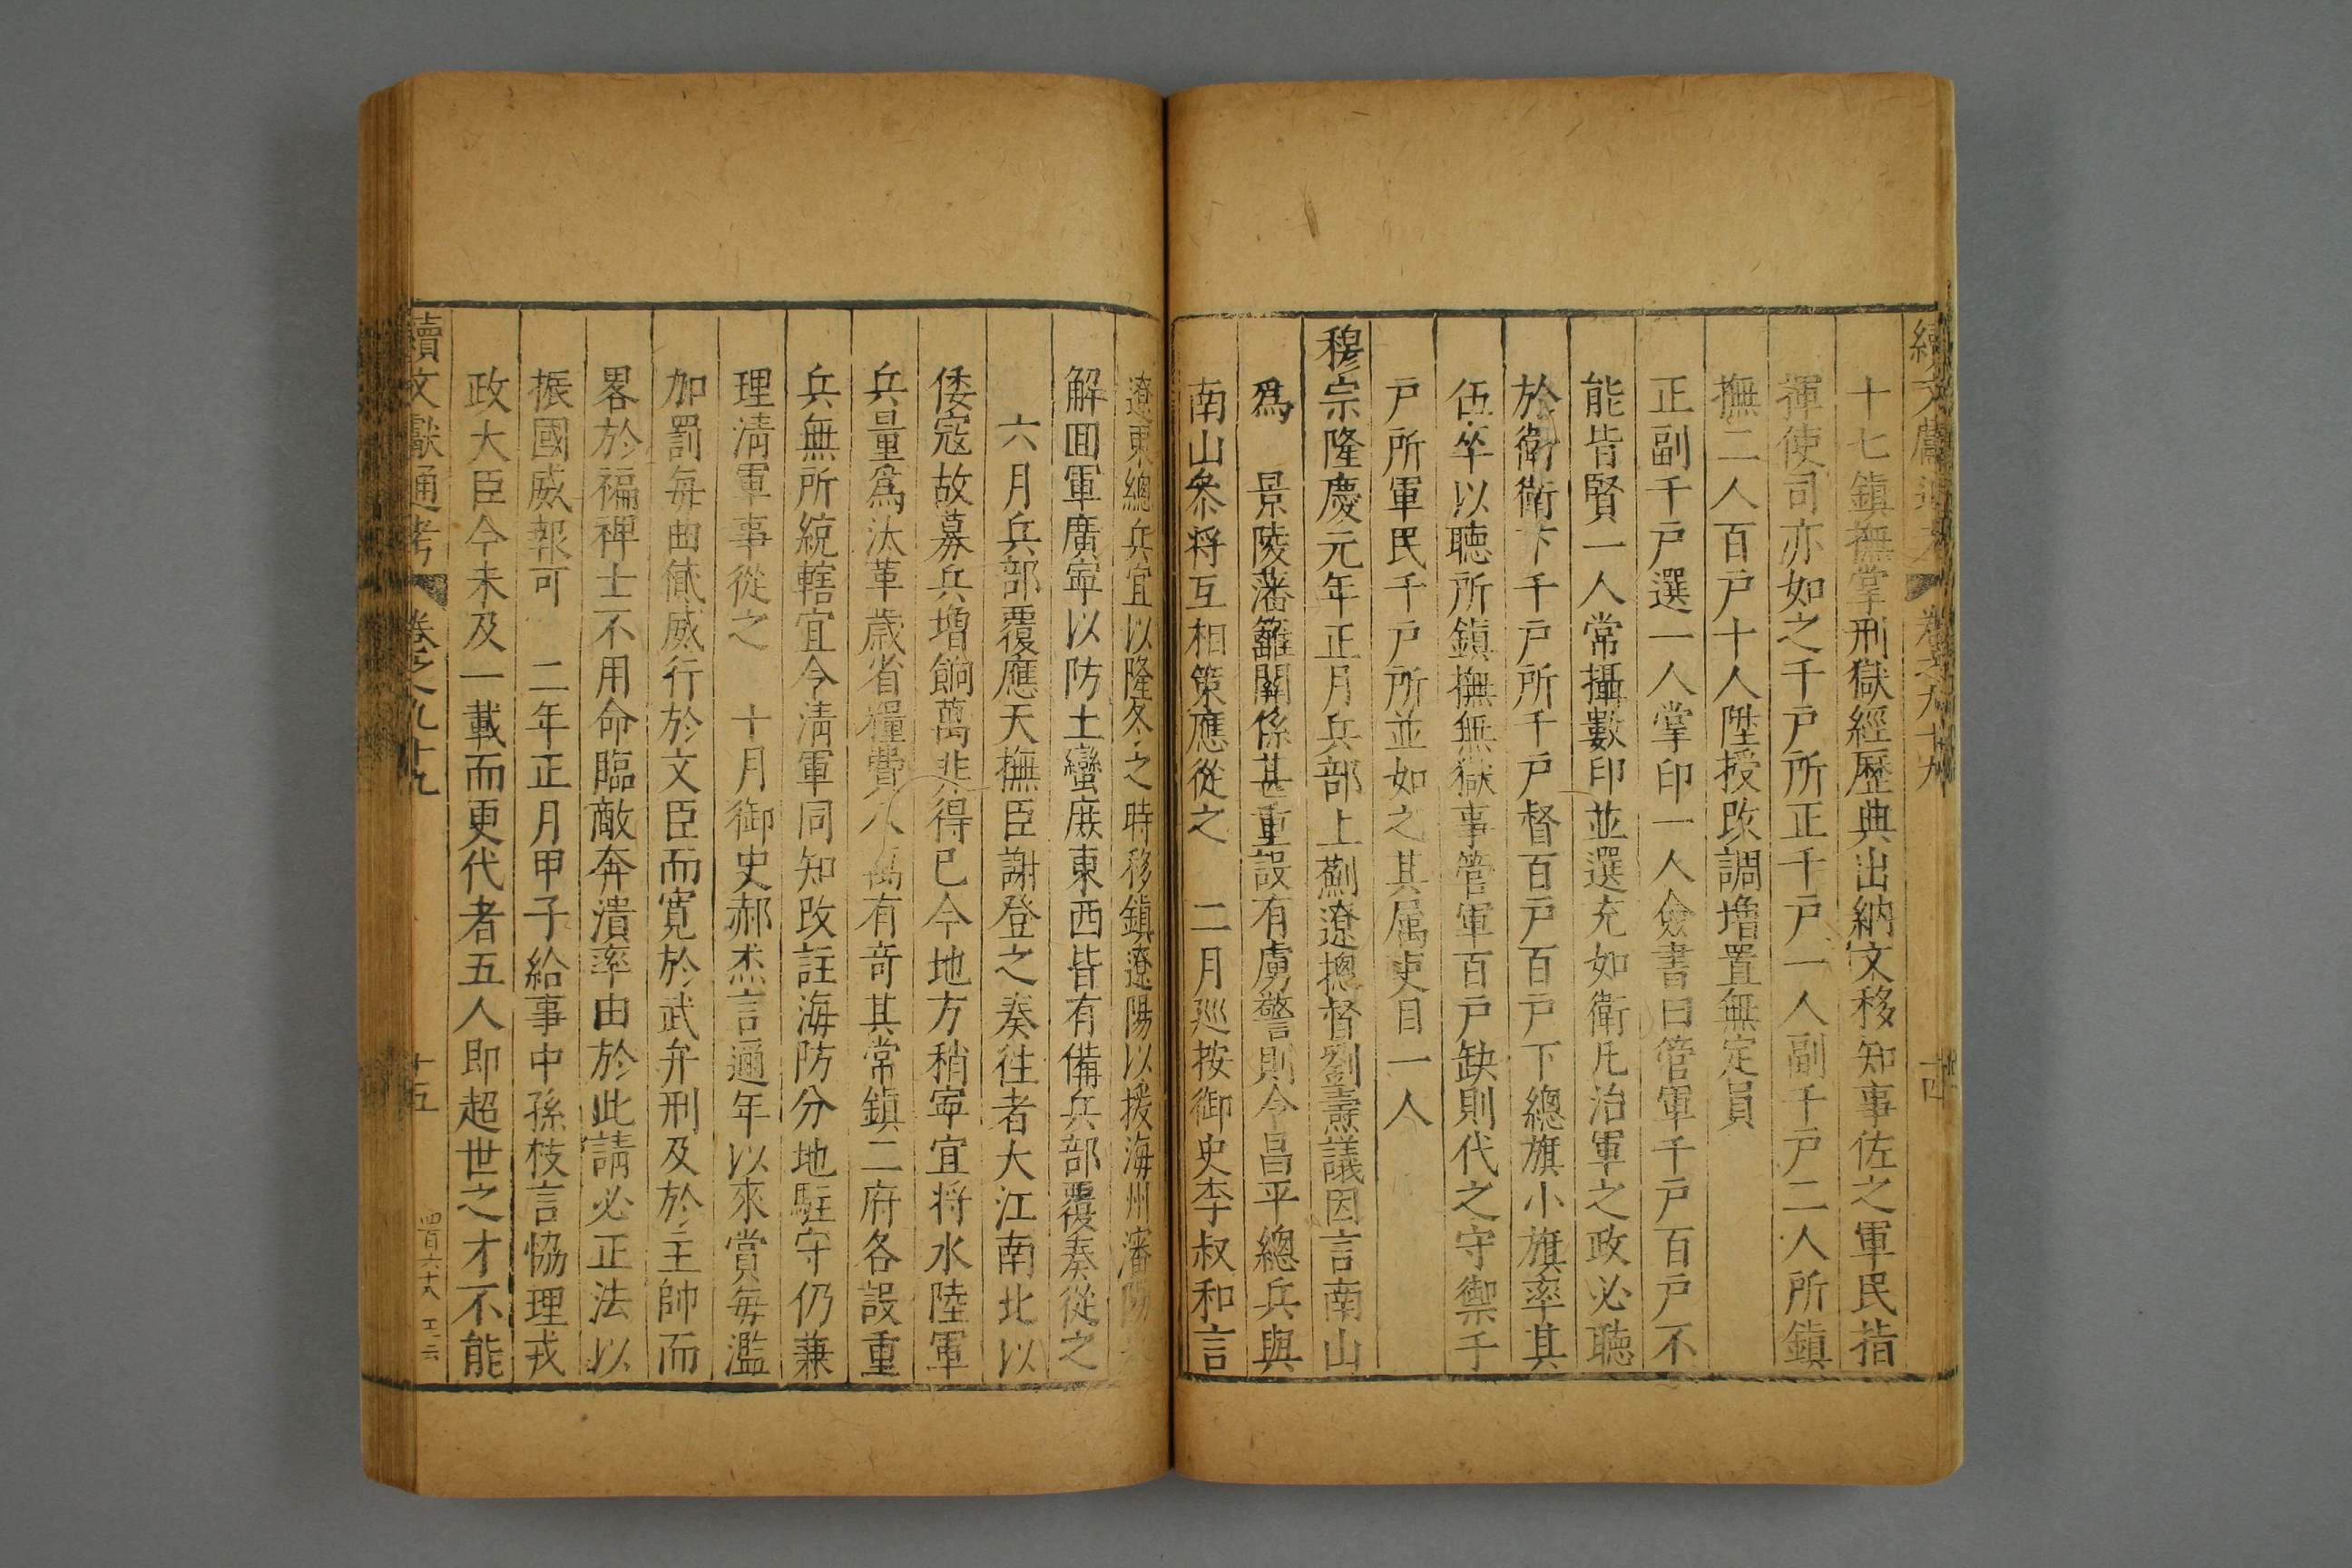 續文獻通考 卷之九十九 十四
十七鎮撫掌刑獄經歷典出納文移知事佐之軍民指
揮使司亦如之千戶所正千戶一人副千戶二人所鎮
撫二人百戶十人陞授改調增置無定員
正副千戶選一人掌印一人僉書曰管軍千戶百戶不
能皆賢一人常攝數印並選充如衛凡治軍之政必聽
於衛衛下千戶所千戶督百戶百戶下總旗小旗率其
伍卒以聽所鎮撫無獄事管軍百戶缺則代之守禦千
戶所軍民千戶所並如之其属吏目一人
穆宗隆慶元年正月兵部上薊遼摠督劉燾議因言南山
為 景陵藩籬關係甚重設有虜警則令昌平總兵與
南山叅将互相策應從之 二月廵按御史李叔和言
遼東總兵宜以隆冬之時移鎮遼陽以援海州瀋陽
解囬軍廣寧以防土蠻庻東西皆有備兵部覆奏從之
六月兵部覆應天撫臣謝登之奏往者大江南北以
倭寇故募兵增餉萬非得已今地方稍寧宜将水陸軍
兵量為汰革歲省糧費八萬有竒其常鎮二府各設重
兵無所統轄宜令清軍同知改註海防分地駐守仍兼
理清軍事從之 十月御史郝杰言邇年以來賞每濫
加罰每曲徇威行於文臣而寛於武弁刑及於主帥而
畧於褊裨士不用命臨敵奔潰率由於此請必正法以
振國威報可 二年正月甲子給事中孫枝言恊理戎
政大臣今未及一載而更代者五人即超世之才不能
續文獻通考 卷之九十九 十五 四百六十八